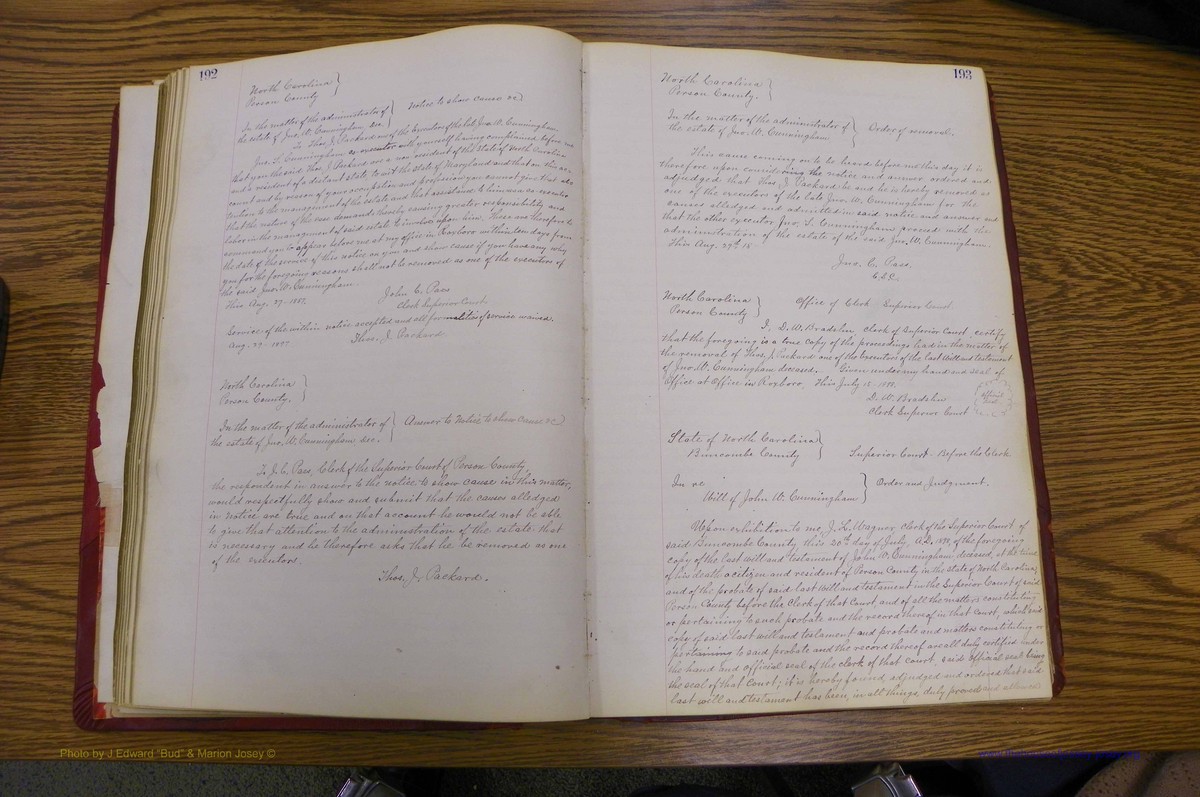 192
North Carolina
Person County
In the matter of the administrator of
the estate of Jno. W. Cunningham, dec.
Notice to show cause &c
To Thos. J. Packard one of the Executors of the late Jno. W. Cunningham.
Jno. S. Cunningham co-executor with yourself having complained before me
that you the said Thos. J. Packard are a non resident of the State of North Carolina
and a resident of a distant state to wit the State of Maryland and that on this ac-
count and by reason of your occupation and profession you cannot give that at-
tention to the management of the estate and that assistance to him as co-executor
that the nature of the case demands, thereby causing greater responsibility and
labor in the management of said estate to devolve upon him. These are therefore to
command you to appear before me at my office in Roxboro within ten days from
the date of the service of this notice on you and show cause if you have any why
you for the foregoing reasons shall not be removed as one of the executors of
the said Jno. W. Cunningham.
This Aug. 27. 1887.
John C. Pass
Clerk Superior Court.
Service of the within notice accepted and all formalities of service waived.
Aug. 27. 1887
Thos. J. Packard
North Carolina
Person County.
In the matter of the administrator of
the estate of Jno. W. Cunningham dec.
Answer to Notice to show cause &c
To J. C. Pass, Clerk of the Superior Court of Person County.
the respondent in answer to the notice to show cause in this matter,
would respectfully show and submit that the causes alledged
in notice are true and on that account he would not be able
to give that attention to the administration of the estate that
is necessary and he therefore asks that he be removed as one
of the executors.
Thos. J. Packard.
193
North Carolina
Person County.
In the matter of the administrator of
the estate of Jno. W. Cunningham
Order of removal.
This cause coming on to be heard before me this day it is
therefore upon considering the notice and answer ordered and
adjudged that Thos. J. Packard be and he is hereby removed as
one of the executors of the late Jno. W. Cunningham for the
causes alledged and admitted in said notice and answer and
that the other executor Jno. S. Cunningham proceed with the
administration of the estate of the said Jno. W. Cunningham.
This Aug. 27th 18
Jno. C. Pass,
C.S.C.
North Carolina
Person County
Office of Clerk Superior Court.
I, D. W. Bradsher, Clerk of Superior Court certify
that the foregoing is a true copy of the proceedings had in the matter of
the removal of Thos. J. Packard one of the Executors of the last Will and testament
of Jno. W. Cunningham deceased. Given under my hand and seal of
Office at Office in Roxboro. This July 18
D. W. Bradsher
Clerk Superior Court
Official Seal
State of North Carolina
Buncombe County
Superior Court. Before the Clerk
In re
Will of John W. Cunningham
Order and Judgment.
Upon exhibition to me, J. L. Wagner Clerk of the Superior Court of
said Buncombe County this 20th day of July A.D. of the foregoing
copy of the last will and testament of John W. Cunningham, deceased, at the time
of his death a citizen and resident of Person County in the state of North Carolina
and of the probate of said last will and testament in the Superior Court of said
Person County before the Clerk of that Court, and of all the matters constituting
or pertaining to such probate and the record thereof in that Court, which said
copy of said last will and testament and probate and matters constituting or
pertaining to said probate and the record thereof are all duly certified under
the hand and official seal of the clerk of that court, said official seal being
the seal of that Court; it is hereby found, adjudged and ordered that said
last will and testament has been, in all things, duly proved and allowed
Photo by J Edward "Bud" & Marion Josey ©